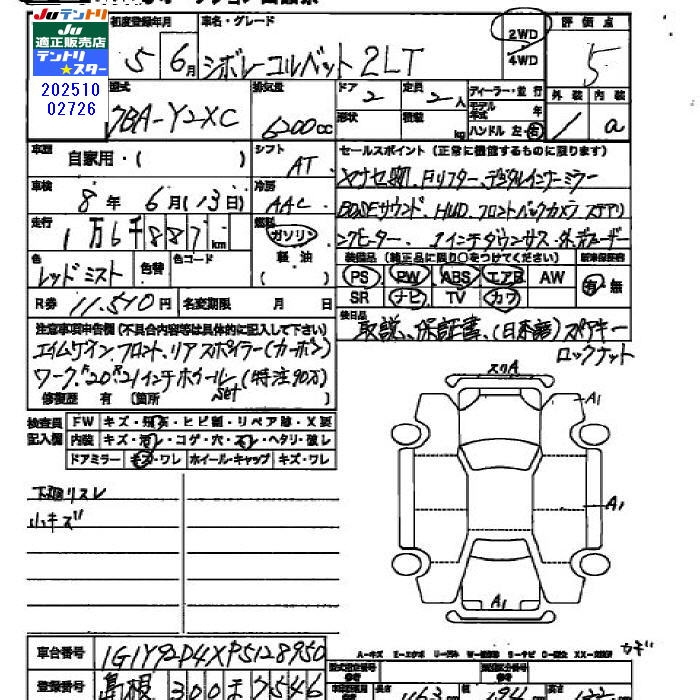 Juテントリ
Ju
適正販売店
テントリ
★スター
202510
02726
初度登録年月 車名・グレード 評価点
5 6月 シボレーコルベット 2LT 2WD 4WD 5
型式 排気量 ドア 定員 ディーラー・並行 外装 内装
7BA-Y2XC 6200cc 2 2人 モデル年式 年 1 a
形状 積載 kg ハンドル 左・右
車歴 自家用・( ) シフト AT セールスポイント(正常に機能するものに限ります)
車検 8年 6月(13日) 冷房 AAC ヤナセ物、Fリフター、デジタルインナーミラー
BOSEサウンド、HUD、フロントバックカメラ ステアリ
走行 1万6千887km 燃料 ガソリン 軽油 ( )
ングヒーター、1インチダウンサス・
色 レッドミスト 色替 色コード
装備品(純正品に限り○をつけてください) 新車保証書
PS PW ABS エアB AW 有・無
SR ナビ TV カワ
R券 11.510円 名変期限 月 日
後日品 取説、保証書、(日本語)スペアキー
ロックナット
注意事項申告欄(不具合内容等は具体的に記入して下さい)
エイムゲイン、フロント、リアスポイラー(カーボン)
ワーク、F20.R21インチホイールset(特注90万)
修復歴 有 (箇所
検査員記入欄
FW キズ・飛石・ヒビ割・リペア跡・X要
内装 キズ・汚レ・コゲ・穴・スレ・ヘタリ・破レ
ドアミラー キズ・ワレ ホイール・キャップ キズ・ワレ
スリA
A1
下廻リスレ
小キズ
A1
A1
車台番号 1G1Y92D4XP5128950
カギ
登録番号 島根 300
長さ 463